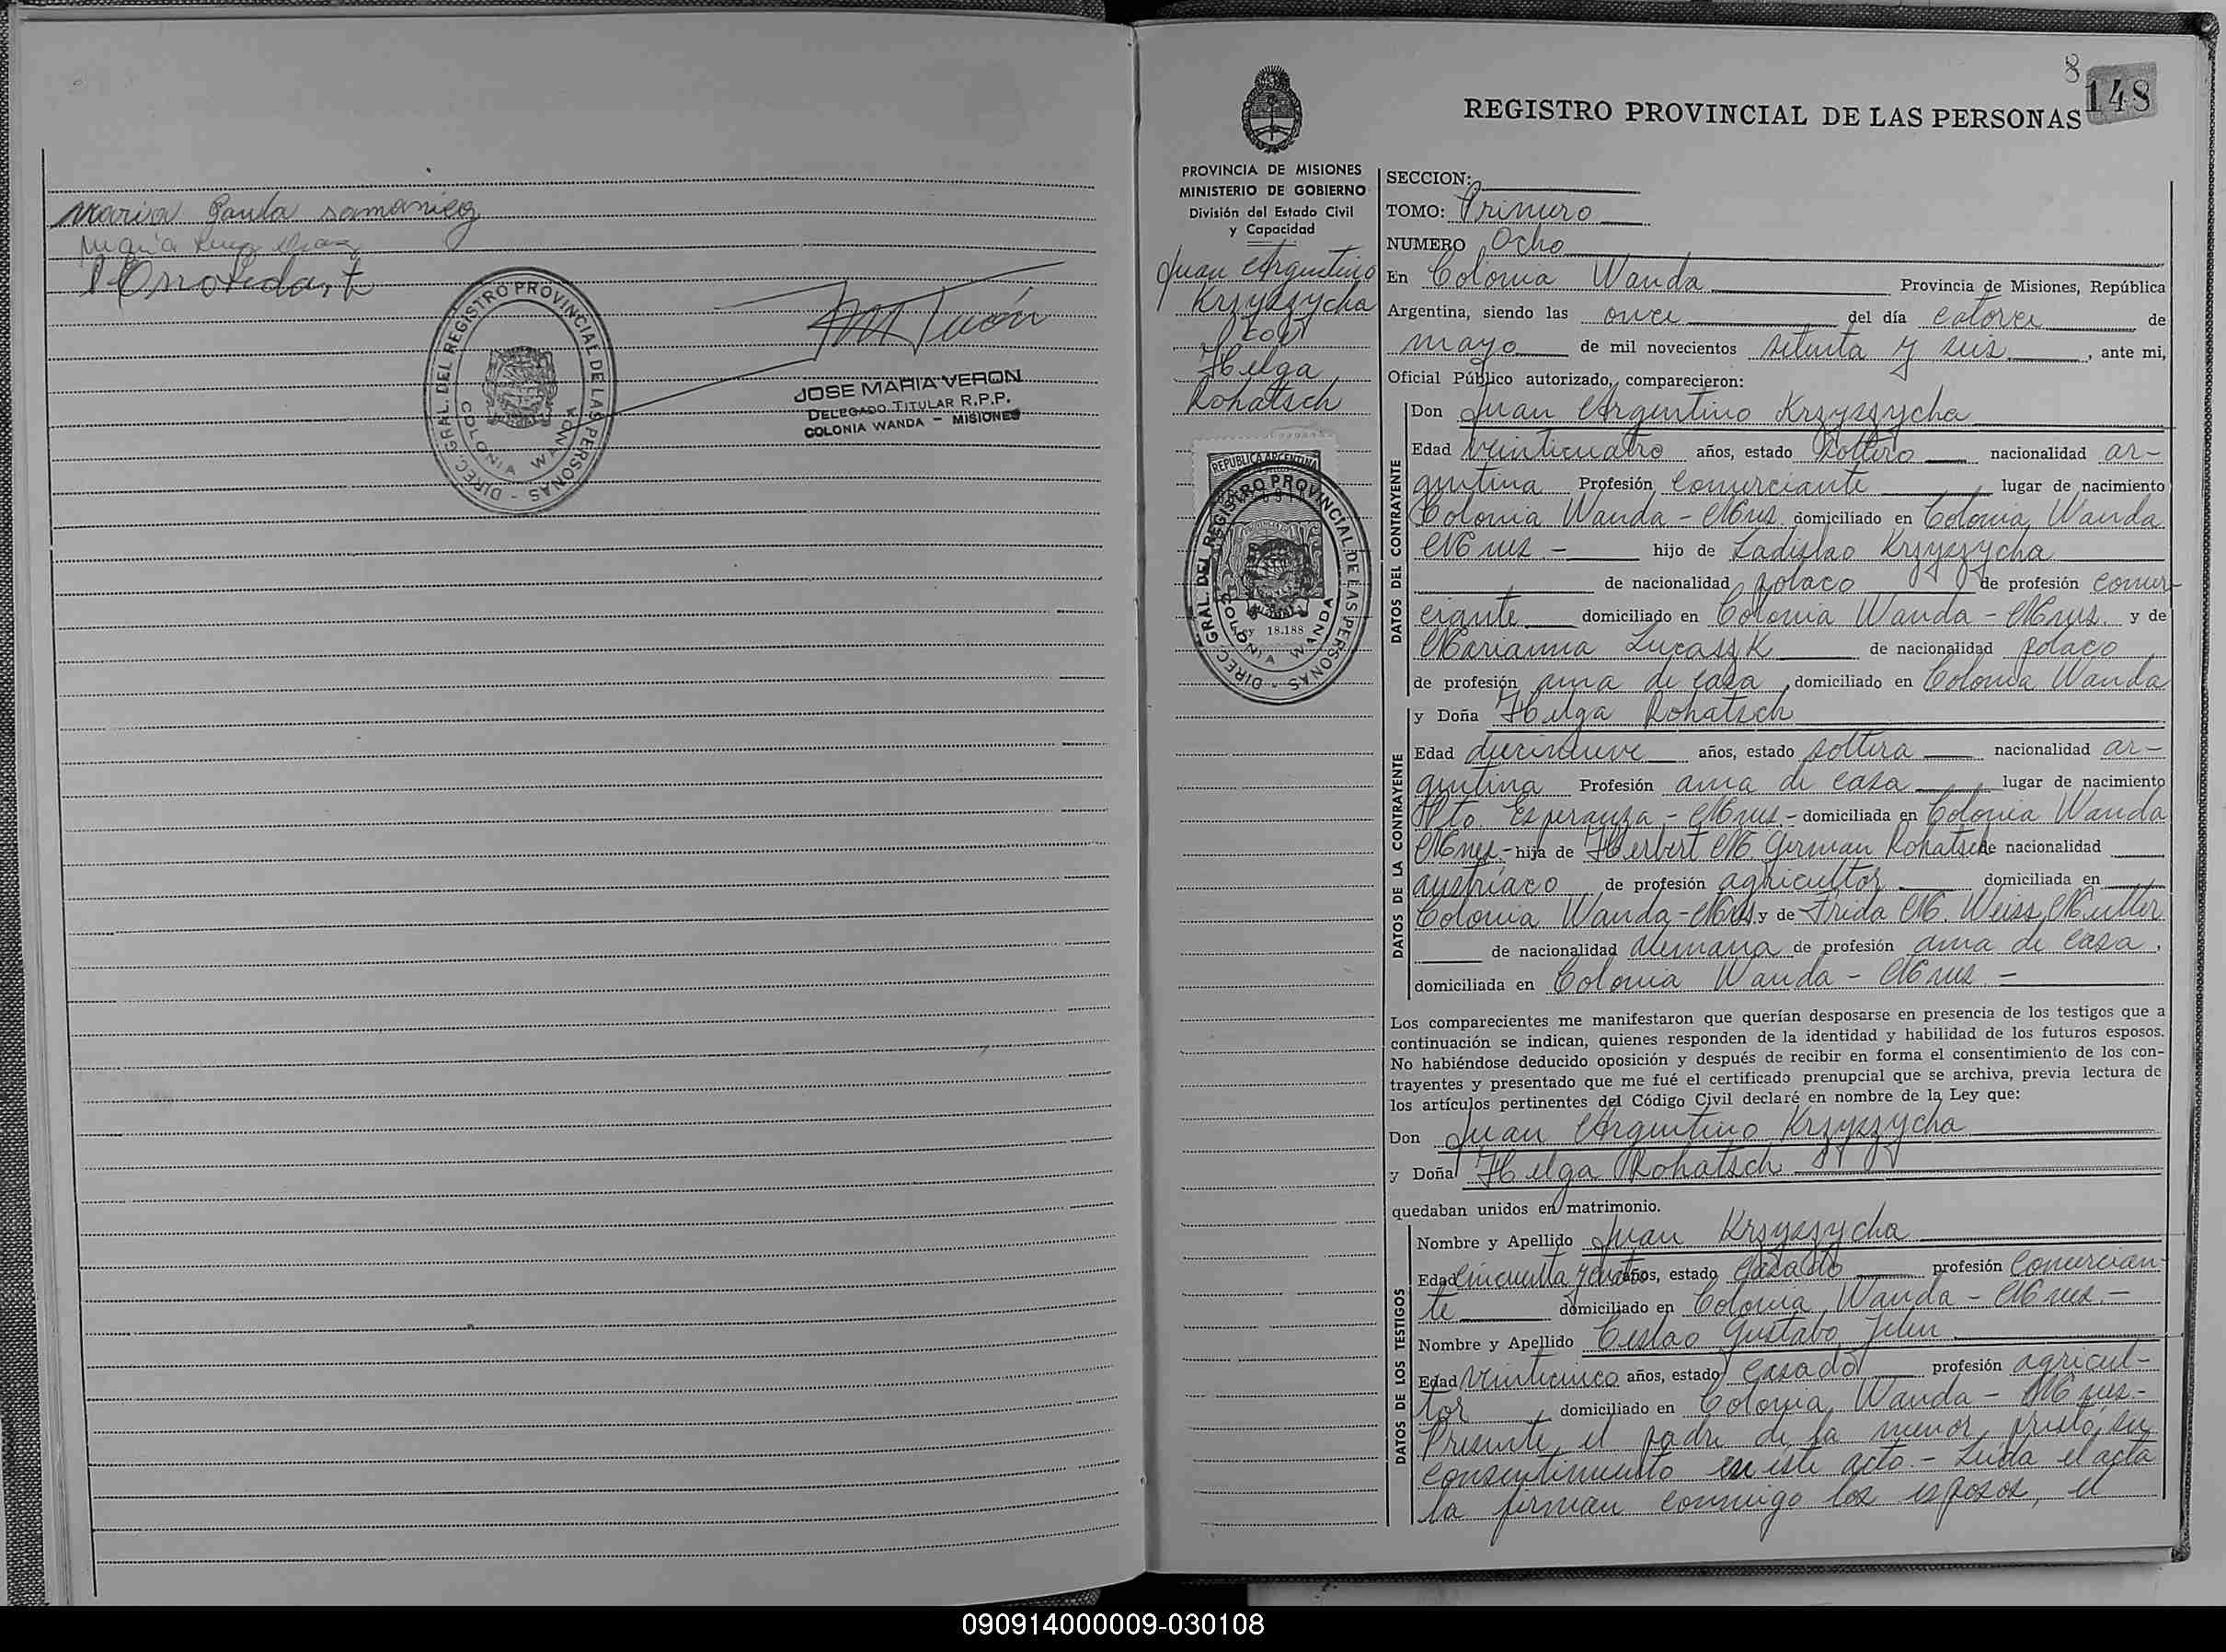 Maria Paula Samaniego
JOSE MARIA VERON
DELEGADO TITULAR R.P.P.
COLONIA WANDA - MISIONES
DIREC. GRAL. DEL REGISTRO PROVINCIAL DE LAS PERSONAS
COLONIA WANDA
8
148
REGISTRO PROVINCIAL DE LAS PERSONAS
PROVINCIA DE MISIONES
MINISTERIO DE GOBIERNO
División del Estado Civil
y Capacidad
Juan Argentino
Krzyszycha
con
Helga
Rohatsch
REPUBLICA ARGENTINA
DIREC. GRAL. DEL REGISTRO PROVINCIAL DE LAS PERSONAS
COLONIA WANDA
Ley 18.188
SECCION:
TOMO: Primero
NUMERO Ocho
En Colonia Wanda Provincia de Misiones, República
Argentina, siendo las once del día catorce de
mayo de mil novecientos setenta y seis, ante mi,
Oficial Público autorizado, comparecieron:
DATOS DEL CONTRAYENTE
Don Juan Argentino Krzyszycha
Edad veinticuatro años, estado soltero nacionalidad ar-
gentina Profesión comerciante lugar de nacimiento
Colonia Wanda - Mnes domiciliado en Colonia Wanda
Mnes - hijo de Ladislao Krzyszycha
de nacionalidad polaco de profesión comer-
ciante domiciliado en Colonia Wanda - Mnes. y de
Marianna Lucaszk de nacionalidad polaco
de profesión ama de casa, domiciliado en Colonia Wanda
DATOS DE LA CONTRAYENTE
y Doña Helga Rohatsch
Edad diecinueve años, estado soltera nacionalidad ar-
gentina Profesión ama de casa lugar de nacimiento
Pto. Esperanza - Mnes.- domiciliada en Colonia Wanda
Mnes.- hija de Herbert M German Rohatsch de nacionalidad
austríaco de profesión agricultor domiciliada en
Colonia Wanda - Mnes y de Frida M. Weiss Muller
de nacionalidad alemana de profesión ama de casa,
domiciliada en Colonia Wanda - Mnes. -
Los comparecientes me manifestaron que querían desposarse en presencia de los testigos que a
continuación se indican, quienes responden de la identidad y habilidad de los futuros esposos.
No habiéndose deducido oposición y después de recibir en forma el consentimiento de los con-
trayentes y presentado que me fué el certificado prenupcial que se archiva, previa lectura de
los artículos pertinentes del Código Civil declaré en nombre de la Ley que:
Don Juan Argentino Krzyszycha
y Doña Helga Rohatsch
quedaban unidos en matrimonio.
DATOS DE LOS TESTIGOS
Nombre y Apellido Juan Krzyszycha
Edad cincuenta y años, estado casado profesión comercian-
te domiciliado en Colonia Wanda - Mnes. -
Nombre y Apellido Ceslao Gustavo
Edad veinticinco años, estado casado profesión agricul-
tor domiciliado en Colonia Wanda - Mnes.-
Presente el padre de la menor prestó su
consentimiento en este acto.- Leída el acta
la firman conmigo los esposos, el
090914000009-030108